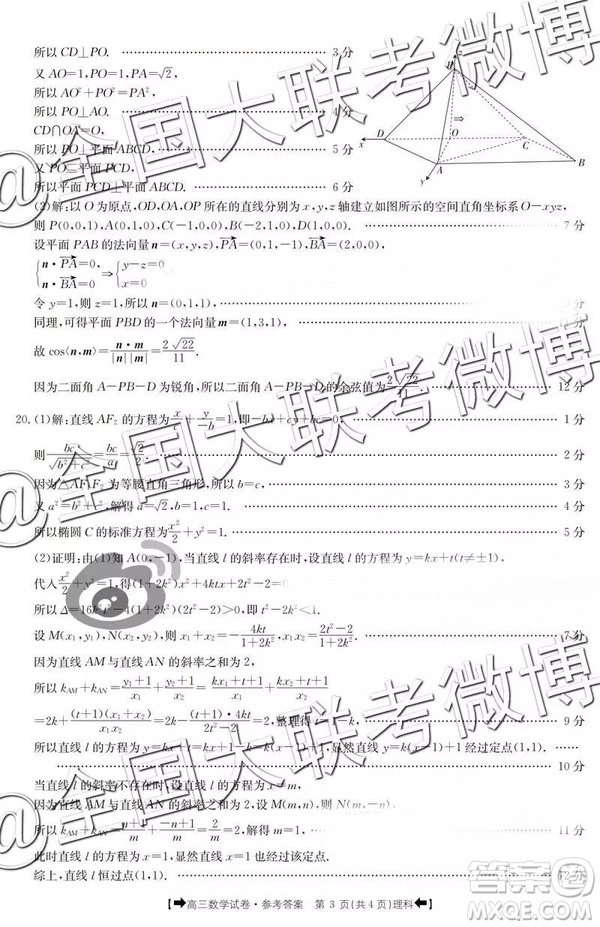 所以 CD⊥PO. 3 分
又 AO=1,PO=1,PA=√2,
所以 AO²+PO²=PA²,
所以 PO⊥AO. 4 分
CD∩OA=O,
所以 PO⊥平面 ABCD. 5 分
又 PO⊂平面 PCD,
所以平面 PCD⊥平面 ABCD. 6 分
(2)解:以 O 为原点,OD,OA,OP 所在的直线分别为 x,y,z 轴建立如图所示的空间直角坐标系 O-xyz,
则 P(0,0,1),A(0,1,0),C(-1,0,0),B(-2,1,0),D(1,0,0). 7 分
设平面 PAB 的法向量 n=(x,y,z),PA=(0,1,-1),BA=(2,0,0),
{n·PA=0, n·BA=0 ⇒ {y-z=0 x=0
令 y=1,则 z=1,所以 n=(0,1,1),
同理,可得平面 PBD 的一个法向量 m=(1,3,1),
故 cos⟨n,m⟩=n·m/|n||m|=2√22/11.
因为二面角 A-PB-D 为锐角,所以二面角 A-PB-D 的余弦值为 2√22/11. 12 分
20. (1)解:直线 AF₂ 的方程为 x/c+y/-b=1,即-bx+cy+bc=0. 1 分
则 bc/√(b²+c²)=bc/a=√2/2.
因为△AF₁F₂ 为等腰直角三角形,所以 b=c, 3 分
又 a²=b²+c²,解得 a=√2,b=1,c=1. 4 分
所以椭圆 C 的标准方程为 x²/2+y²=1. 5 分
(2)证明:由(1)知 A(0,-1),当直线 l 的斜率存在时,设直线 l 的方程为 y=kx+t(t≠±1),
代入 x²/2+y²=1,得(1+2k²)x²+4ktx+2t²-2=0,
所以 Δ=16k²t²-4(1+2k²)(2t²-2)>0,即 t²-2k²<1.
设 M(x₁,y₁),N(x₂,y₂),则 x₁+x₂=-4kt/1+2k²,x₁x₂=2t²-2/1+2k². 7 分
因为直线 AM 与直线 AN 的斜率之和为 2,
所以 k_AM+k_AN=y₁+1/x₁+y₂+1/x₂=kx₁+t+1/x₁+kx₂+t+1/x₂
=2k+(t+1)(x₁+x₂)/x₁x₂=2k-(t+1)·4kt/2t²-2=2,整理得 t=1-k. 9 分
所以直线 l 的方程为 y=kx+t=kx+1-k=k(x-1)+1,显然直线 y=k(x-1)+1 经过定点(1,1).
10 分
当直线 l 的斜率不存在时,设直线 l 的方程为 x=m,
因为直线 AM 与直线 AN 的斜率之和为 2,设 M(m,n),则 N(m,-n),
所以 k_AM+k_AN=n+1/m+-n+1/m=2/m=2,解得 m=1, 11 分
此时直线 l 的方程为 x=1,显然直线 x=1 也过该定点.
综上,直线 l 恒过点(1,1). 12 分
高三数学试卷·参考答案 第 3 页(共 4 页)理科
@全国大联考微博
@全国大联考微博
@全国大联考微博
答案圈
MXQE.COM